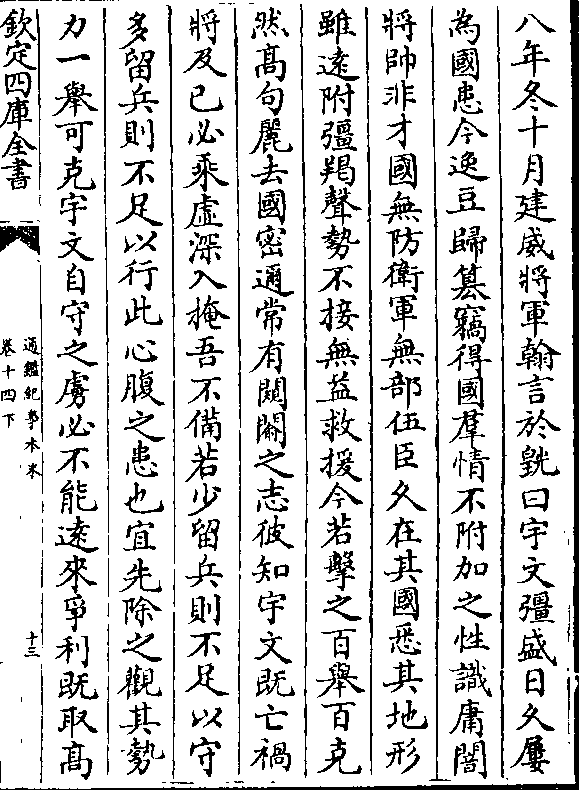 八年冬十月建威將軍翰言於皝曰宇文彊盛日久屢
為國患今逸豆歸簒竊得國羣情不附加之性識庸闇
將帥非才國無防衛軍無部伍臣久在其國悉其地形
雖逺附彊羯聲勢不接無益救援今若擊之百舉百克
然髙句麗去國密邇常有闚𨵦之志彼知宇文既亡禍
將及已必乘虛深入掩吾不備若少留兵則不足以守
多留兵則不足以行此心腹之患也宜先除之觀其勢
力一舉可克宇文自守之虜必不能逺來爭利既取髙
欽定四庫全書
通鑑紀事本末
卷十四下
十三